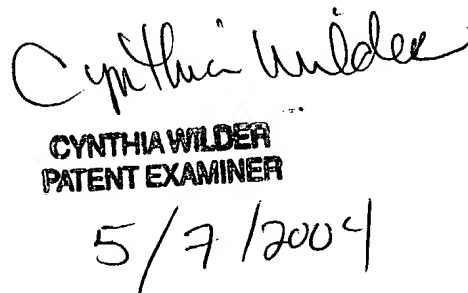 Cynthia Wilder
CYNTHIA WILDER
PATENT EXAMINER
5/7/2004